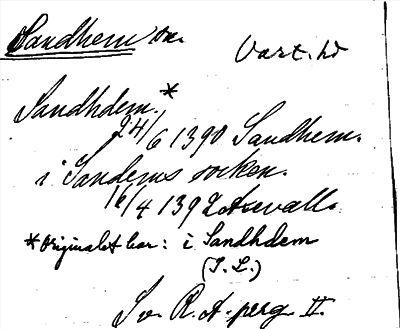 Sandhem sn. Vart. hd
Sandhdem.*
24/6 1390 Sandhem.
i Sandems socken.
16/4 1392 Axevalla
*Originalet har: i Sandhdem
(I. L.)
Sv. R. A. perg II.